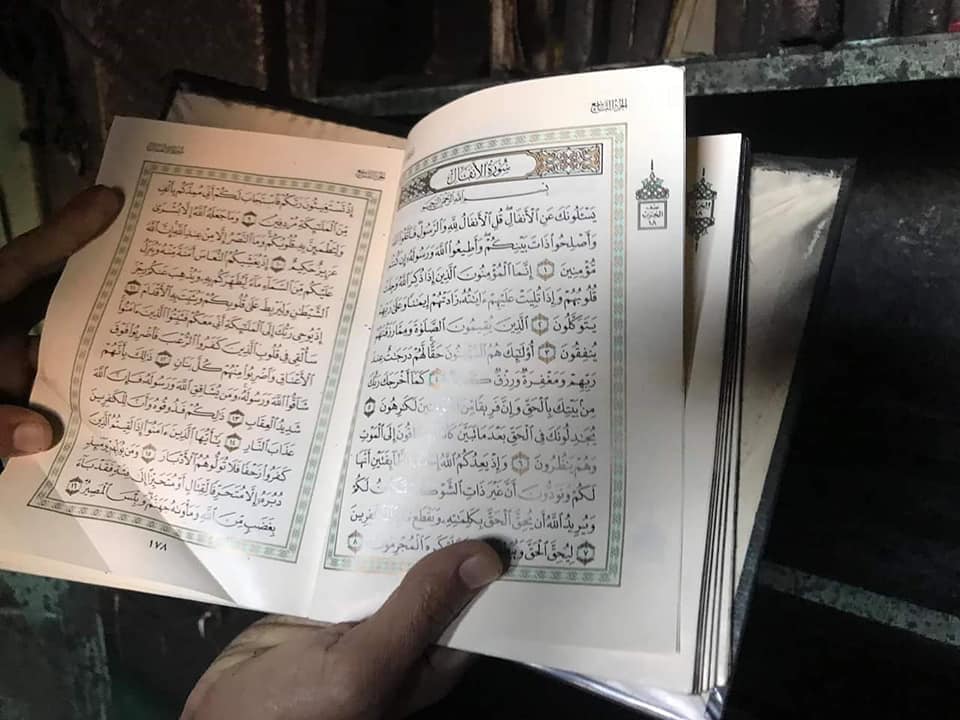 الجزء التاسع
سُورَةُ الأَنفَالِ
بِسْمِ اللَّهِ الرَّحْمَٰنِ الرَّحِيمِ
يَسْـَٔلُونَكَ عَنِ ٱلْأَنفَالِ قُلِ ٱلْأَنفَالُ لِلَّهِ وَٱلرَّسُولِ فَٱتَّقُوا۟
وَأَصْلِحُوا۟ ذَاتَ بَيْنِكُمْ وَأَطِيعُوا۟ ٱللَّهَ وَرَسُولَهُۥٓ إِن كُنتُم
مُّؤْمِنِينَ ١ إِنَّمَا ٱلْمُؤْمِنُونَ ٱلَّذِينَ إِذَا ذُكِرَ ٱللَّهُ وَجِلَتْ
قُلُوبُهُمْ وَإِذَا تُلِيَتْ عَلَيْهِمْ ءَايَٰتُهُۥ زَادَتْهُمْ إِيمَٰنًا وَعَلَىٰ رَبِّهِمْ
يَتَوَكَّلُونَ ٢ ٱلَّذِينَ يُقِيمُونَ ٱلصَّلَوٰةَ وَمِمَّا رَزَقْنَٰهُمْ
يُنفِقُونَ ٣ أُو۟لَٰٓئِكَ هُمُ ٱلْمُؤْمِنُونَ حَقًّا لَّهُمْ دَرَجَٰتٌ عِندَ
رَبِّهِمْ وَمَغْفِرَةٌ وَرِزْقٌ كَرِيمٌ ٤ كَمَآ أَخْرَجَكَ رَبُّكَ
مِنۢ بَيْتِكَ بِٱلْحَقِّ وَإِنَّ فَرِيقًا مِّنَ ٱلْمُؤْمِنِينَ لَكَٰرِهُونَ ٥
يُجَٰدِلُونَكَ فِى ٱلْحَقِّ بَعْدَ مَا تَبَيَّنَ كَأَنَّمَا يُسَاقُونَ إِلَى ٱلْمَوْتِ
وَهُمْ يَنظُرُونَ ٦ وَإِذْ يَعِدُكُمُ ٱللَّهُ إِحْدَى ٱلطَّآئِفَتَيْنِ أَنَّهَا
لَكُمْ وَتَوَدُّونَ أَنَّ غَيْرَ ذَاتِ ٱلشَّوْكَةِ تَكُونُ لَكُمْ
وَيُرِيدُ ٱللَّهُ أَن يُحِقَّ ٱلْحَقَّ بِكَلِمَٰتِهِۦ وَيَقْطَعَ دَابِرَ ٱلْكَٰفِرِينَ
٧ لِيُحِقَّ ٱلْحَقَّ كَرِهَ ٱلْمُجْرِمُونَ ٨
نصف
الحزب
١٨
الجزء التاسع
سورة الأنفال
إِذْ تَسْتَغِيثُونَ رَبَّكُمْ فَٱسْتَجَابَ لَكُمْ أَنِّى مُمِدُّكُم بِأَلْفٍ
مِّنَ ٱلْمَلَٰٓئِكَةِ مُرْدِفِينَ ٩ وَمَا جَعَلَهُ ٱللَّهُ إِلَّا بُشْرَىٰ
وَلِتَطْمَئِنَّ بِهِۦ قُلُوبُكُمْ وَمَا ٱلنَّصْرُ إِلَّا مِنْ عِندِ ٱللَّهِ إِنَّ ٱللَّهَ
عَزِيزٌ حَكِيمٌ ١٠ إِذْ يُغَشِّيكُمُ ٱلنُّعَاسَ أَمَنَةً مِّنْهُ وَيُنَزِّلُ
عَلَيْكُم مِّنَ ٱلسَّمَآءِ مَآءً لِّيُطَهِّرَكُم بِهِۦ وَيُذْهِبَ عَنكُمْ رِجْزَ
ٱلشَّيْطَٰنِ وَلِيَرْبِطَ عَلَىٰ قُلُوبِكُمْ وَيُثَبِّتَ بِهِ ٱلْأَقْدَامَ ١١
إِذْ يُوحِى رَبُّكَ إِلَى ٱلْمَلَٰٓئِكَةِ أَنِّى مَعَكُمْ فَثَبِّتُوا۟ ٱلَّذِينَ ءَامَنُوا۟
سَأُلْقِى فِى قُلُوبِ ٱلَّذِينَ كَفَرُوا۟ ٱلرُّعْبَ فَٱضْرِبُوا۟ فَوْقَ
ٱلْأَعْنَاقِ وَٱضْرِبُوا۟ مِنْهُمْ كُلَّ بَنَانٍ ١٢ ذَٰلِكَ بِأَنَّهُمْ
شَآقُّوا۟ ٱللَّهَ وَرَسُولَهُۥ وَمَن يُشَاقِقِ ٱللَّهَ وَرَسُولَهُۥ فَإِنَّ ٱللَّهَ
شَدِيدُ ٱلْعِقَابِ ١٣ ذَٰلِكُمْ فَذُوقُوهُ وَأَنَّ لِلْكَٰفِرِينَ
عَذَابَ ٱلنَّارِ ١٤ يَٰٓأَيُّهَا ٱلَّذِينَ ءَامَنُوٓا۟ إِذَا لَقِيتُمُ ٱلَّذِينَ
كَفَرُوا۟ زَحْفًا فَلَا تُوَلُّوهُمُ ٱلْأَدْبَارَ ١٥ وَمَن يُوَلِّهِمْ يَوْمَئِذٍ
دُبُرَهُۥٓ إِلَّا مُتَحَرِّفًا لِّقِتَالٍ أَوْ مُتَحَيِّزًا إِلَىٰ فِئَةٍ فَقَدْ بَآءَ
بِغَضَبٍ مِّنَ ٱللَّهِ وَمَأْوَىٰهُ جَهَنَّمُ وَبِئْسَ ٱلْمَصِيرُ ١٦
١٧٨